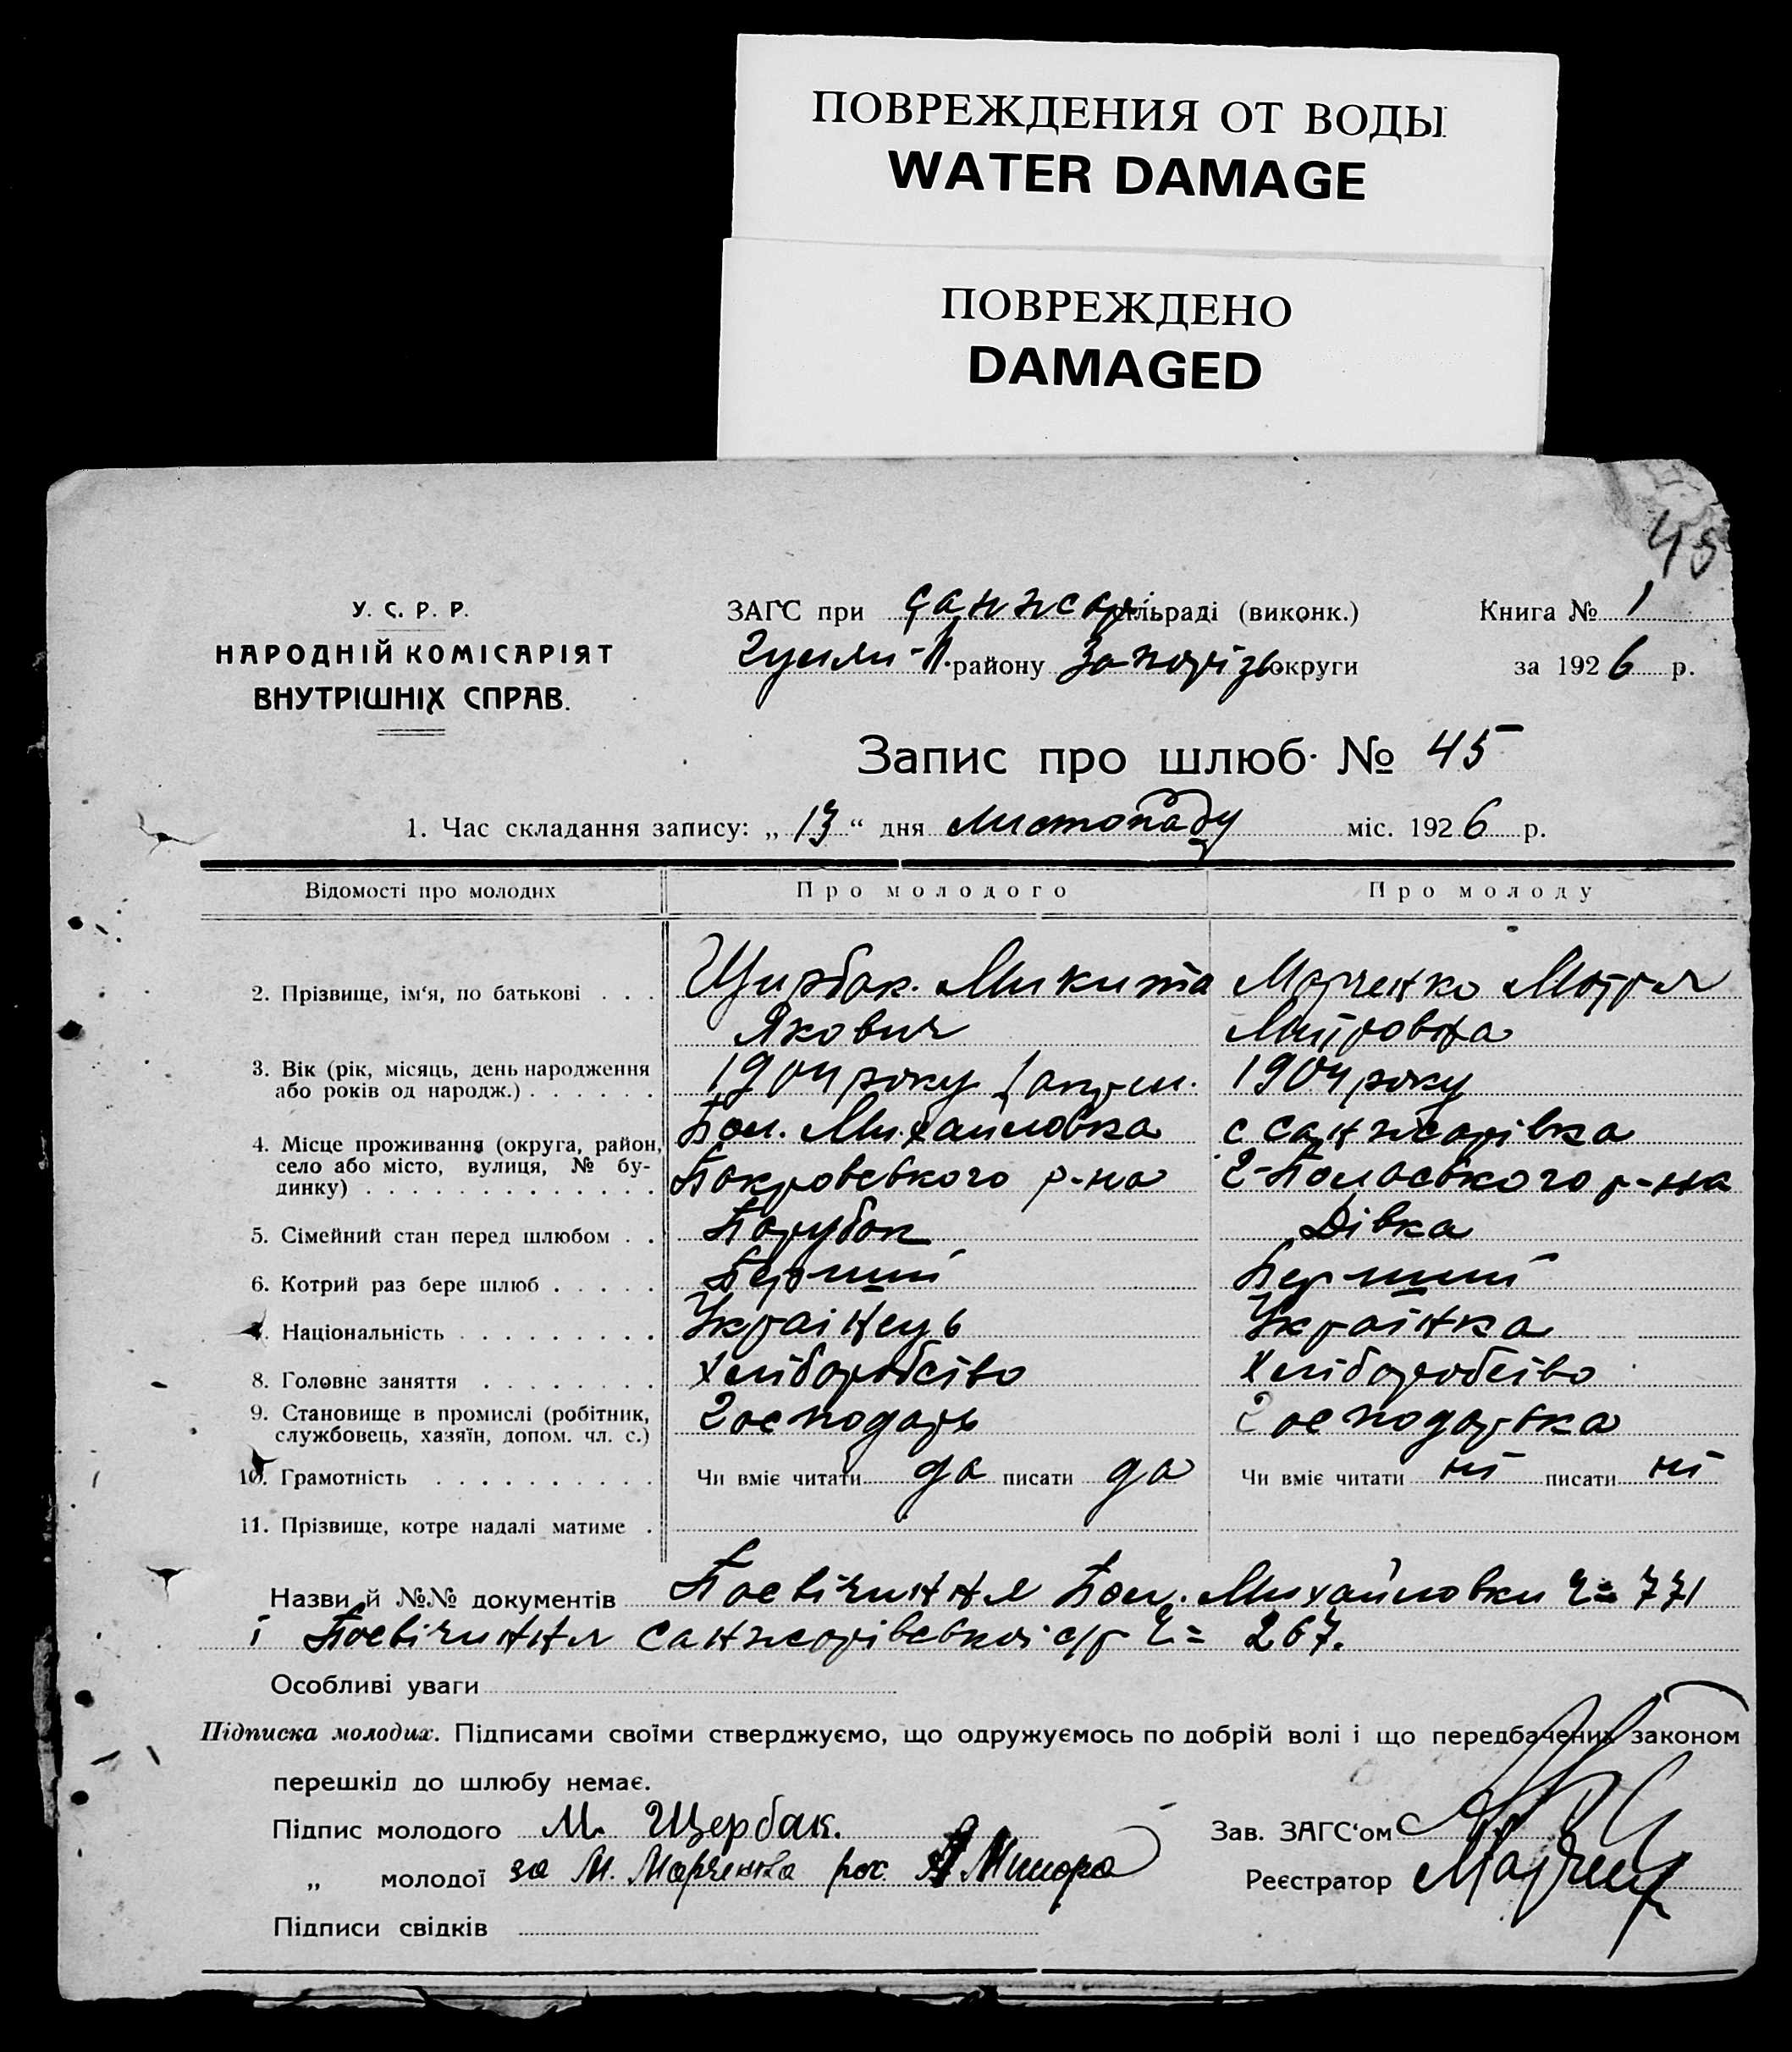 ПОВРЕЖДЕНИЯ ОТ ВОДЫ
WATER DAMAGE
ПОВРЕЖДЕНО
DAMAGED
45
У. С. Р. Р.
НАРОДНІЙ КОМІСАРІЯТ
ВНУТРІШНІХ СПРАВ.
ЗАГС при Санжар. сільраді (виконк.) Книга № 1
Гуляй-П. району Запоріз округи за 1926 р.
Запис про шлюб № 45
1. Час складання запису: „ 13 “ дня листопаду міс. 1926 р.
Відомості про молодих Про молодого Про молоду
2. Прізвище, ім‘я, по батькові . . . Щирбак. Микита Марченко Мотря
Якович Митровна
3. Вік (рік, місяць, день народження 1904 року 1904 року
або років од народж.) . . . . . .
4. Місце проживання (округа, район, Бол. Михайловка с Санжарівка
село або місто, вулиця, № бу- Покровського р-на Г-Польського р-на
динку) . . . . . . . . . . . . .
5. Сімейний стан перед шлюбом . . Парубок Дівка
6. Котрий раз бере шлюб . . . . . Перший Перший
7. Національність . . . . . . . . . Українець Українка
8. Головне заняття . . . . . . . . Хліборобство Хліборобство
9. Становище в промислі (робітник, Господарь Господарька
службовець, хазяїн, допом. чл. с.)
10. Грамотність . . . . . . . . . . Чи вміє читати да писати да Чи вміє читати ні писати ні
11. Прізвище, котре надалі матиме .
Назви й №№ документів Посвічиння Бол. Михайловки Ч= 771
і Посвічиння Санжарівської с/р Ч= 267.
Особливі уваги
Підписка молодих. Підписами своїми стверджуємо, що одружуємось по добрій волі і що передбачених законом
перешкід до шлюбу немає.
Підпис молодого М. Щербак. Зав. ЗАГС‘ом
„ молодої за М. Марченко рос. Реєстратор
Підписи свідків